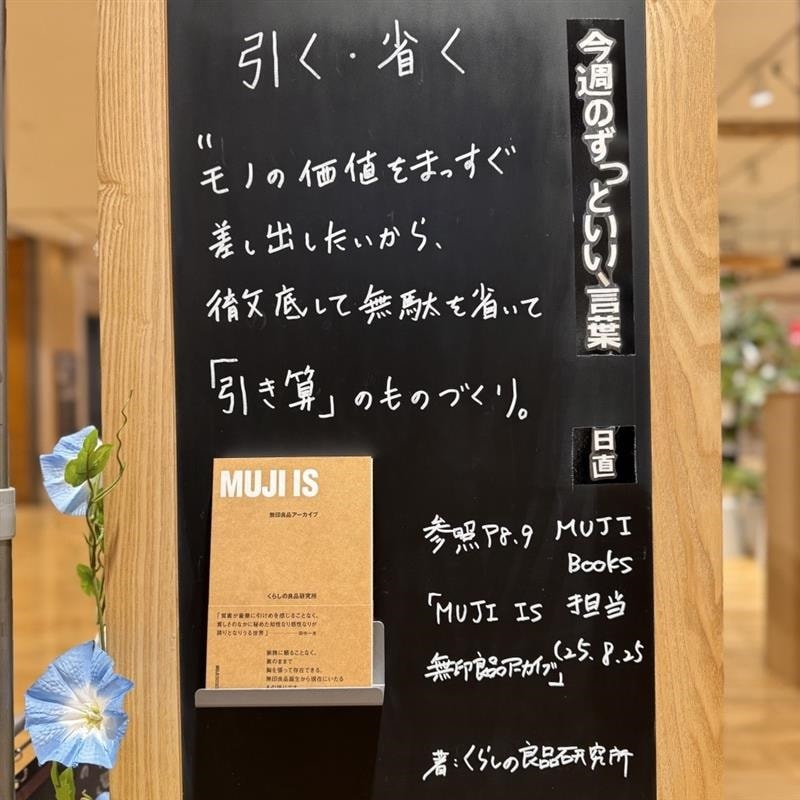 今週のずっといい、言葉
引く・省く
"モノの価値をまっすぐ
差し出したいから、
徹底して無駄を省いて
「引き算」のものづくり。
日直
MUJI
Books
担当
('25.8.25
参照P8.9
「MUJI IS
無印良品アーカイブ」
著:くらしの良品研究所
MUJI IS
無印良品アーカイブ
くらしの良品研究所
「簡素が豪華に引けめを感じることなく、
貧しさのなかに秘めた知性なり感性なりが
誇りとなりうる世界」
田中一光
装飾に頼ることなく、
素のままで
胸を張って存在できる。
無印良品誕生から現在にいたる